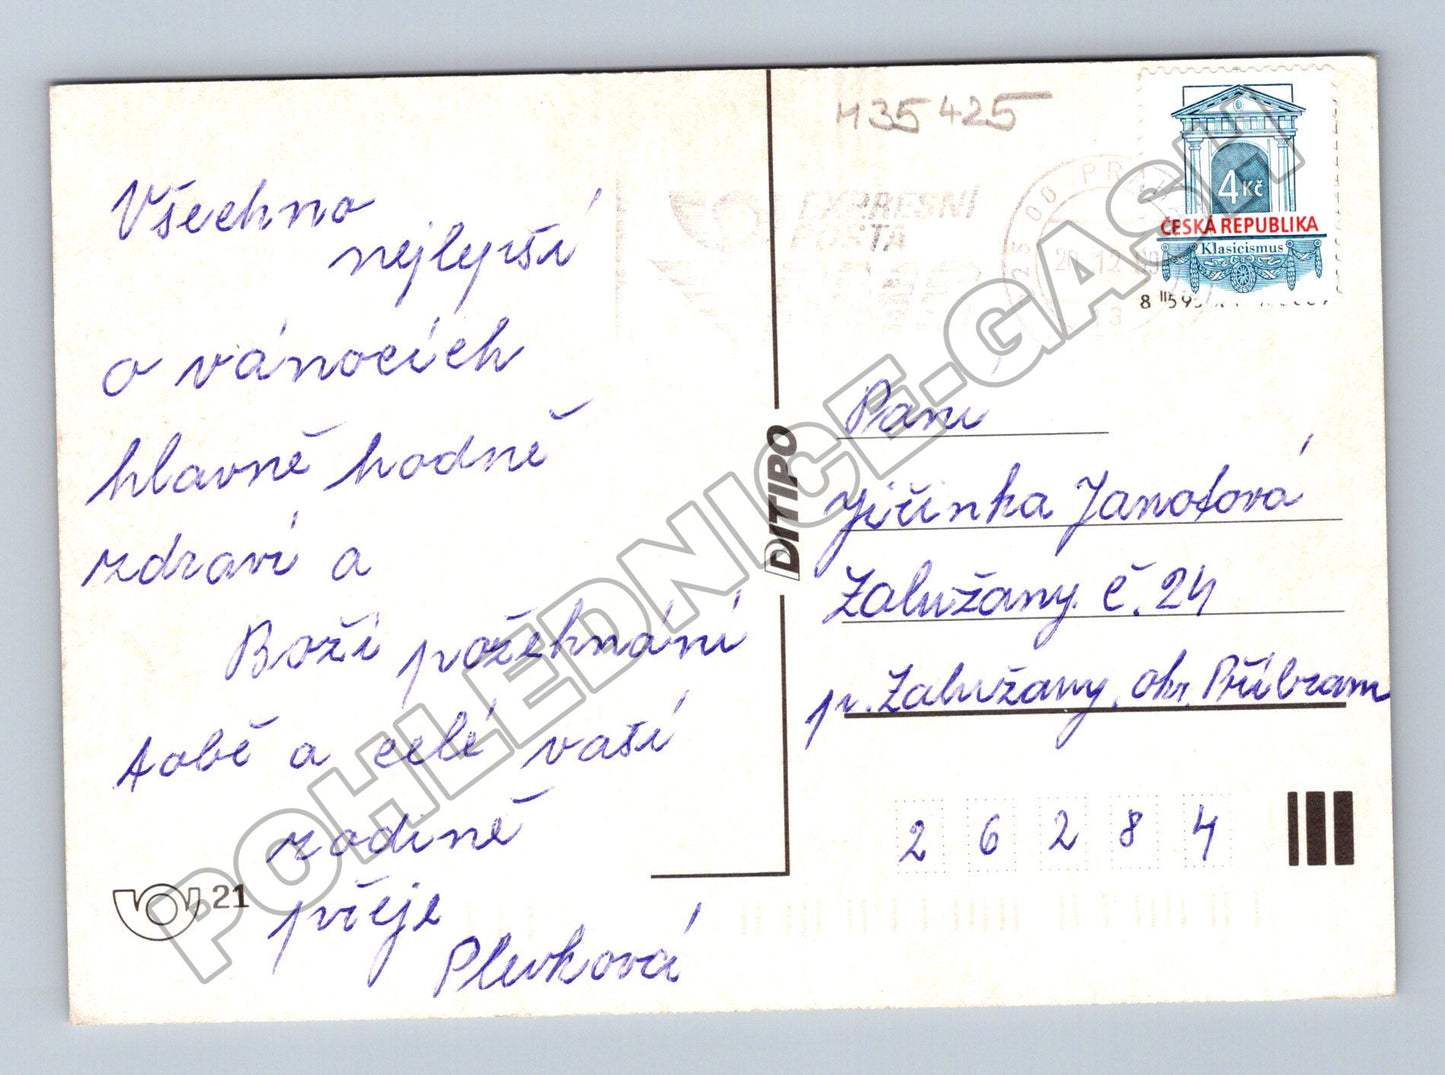 Všechno
nejlepší
o vánocích
hlavně hodně
zdraví a
Boží požehnání
tobě a celé vaší
rodině
přeje
Plevková
21
DITIPO
M35 425
EXPRESNÍ
POŠTA
4 Kč
ČESKÁ REPUBLIKA
Klasicismus
Paní
Jiřinka Janotová
Zalužany č. 24
p. Zalužany, okr. Příbram
2 6 2 8 4
POHLEDNICE-GASH